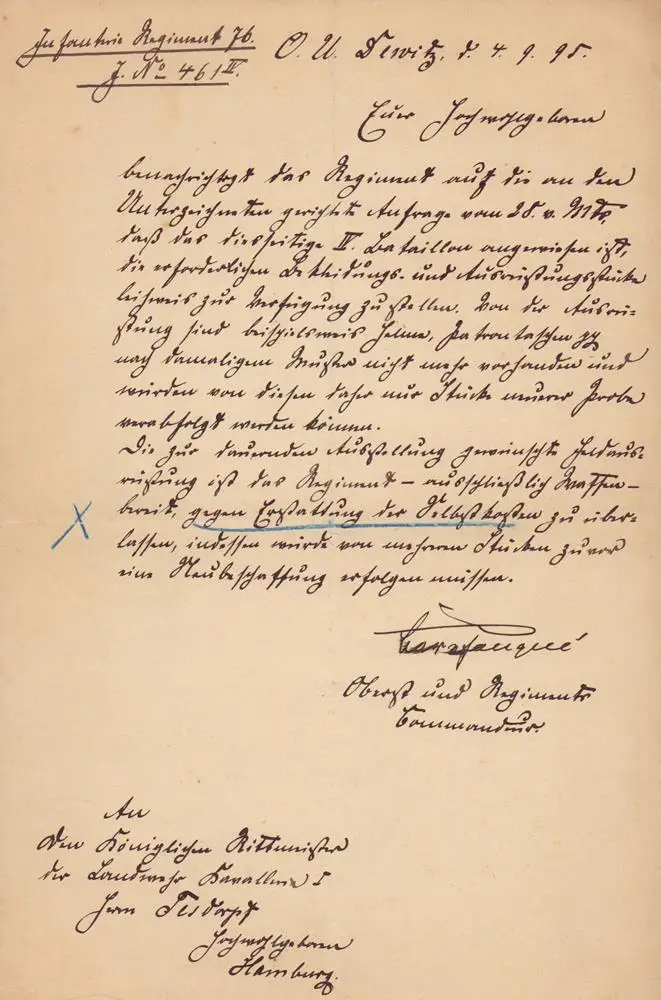 Infanterie Regiment 76.
J. No 461 IV.
O. U. Dewitz, d. 4. 9. 95.
Euer Hochwohlgeboren
benachrichtigt das Regiment auf die an den
Unterzeichneten gerichtete Anfrage vom 28. v. Mts,
daß das diesseitige IV. Bataillon angewiesen ist,
die erforderlichen Bekleidungs- und Ausrüstungsstücke
leihweis zur Verfügung zu stellen. Von der Ausrü-
stung sind beispielsweis Helme, Patrontaschen pp
nach damaligem Muster nicht mehr vorhanden und
würden von diesen daher nur Stücke neuerer Probe
verabfolgt werden können.
Die zur dauernden Ausstellung gewünschte Feldaus-
rüstung ist das Regiment – ausschließlich Waffen –
bereit, gegen Erstattung der Selbstkosten zu über-
lassen, indessen würde von mehreren Stücken zuvor
eine Neubeschaffung erfolgen müssen.
Oberst und Regiments
Commandeur.
An
den Königlichen Rittmeister
der Landwehr Kavallerie I
Herrn Tesdorpf
Hochwohlgeboren
Hamburg.